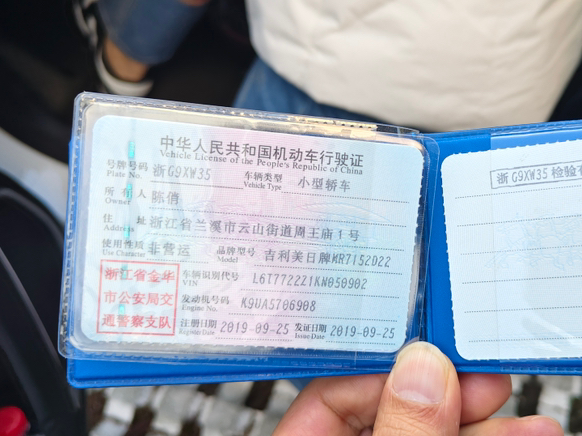 中华人民共和国机动车行驶证
Vehicle License of the People's Republic of China
号牌号码 浙G9XW35 车辆类型 小型轿车
Plate No. Vehicle Type
所有人 陈俏
Owner
住址 浙江省兰溪市云山街道周王庙1号
Address
使用性质 非营运 品牌型号 吉利美日牌MR7152D22
Use Character Model
浙江省金华
市公安局交
通警察支队
车辆识别代号 L6T772221KN050902
VIN
发动机号码 K9UA5706908
Engine No.
注册日期 2019-09-25 发证日期 2019-09-25
Register Date Issue Date
浙G9XW35 检验有